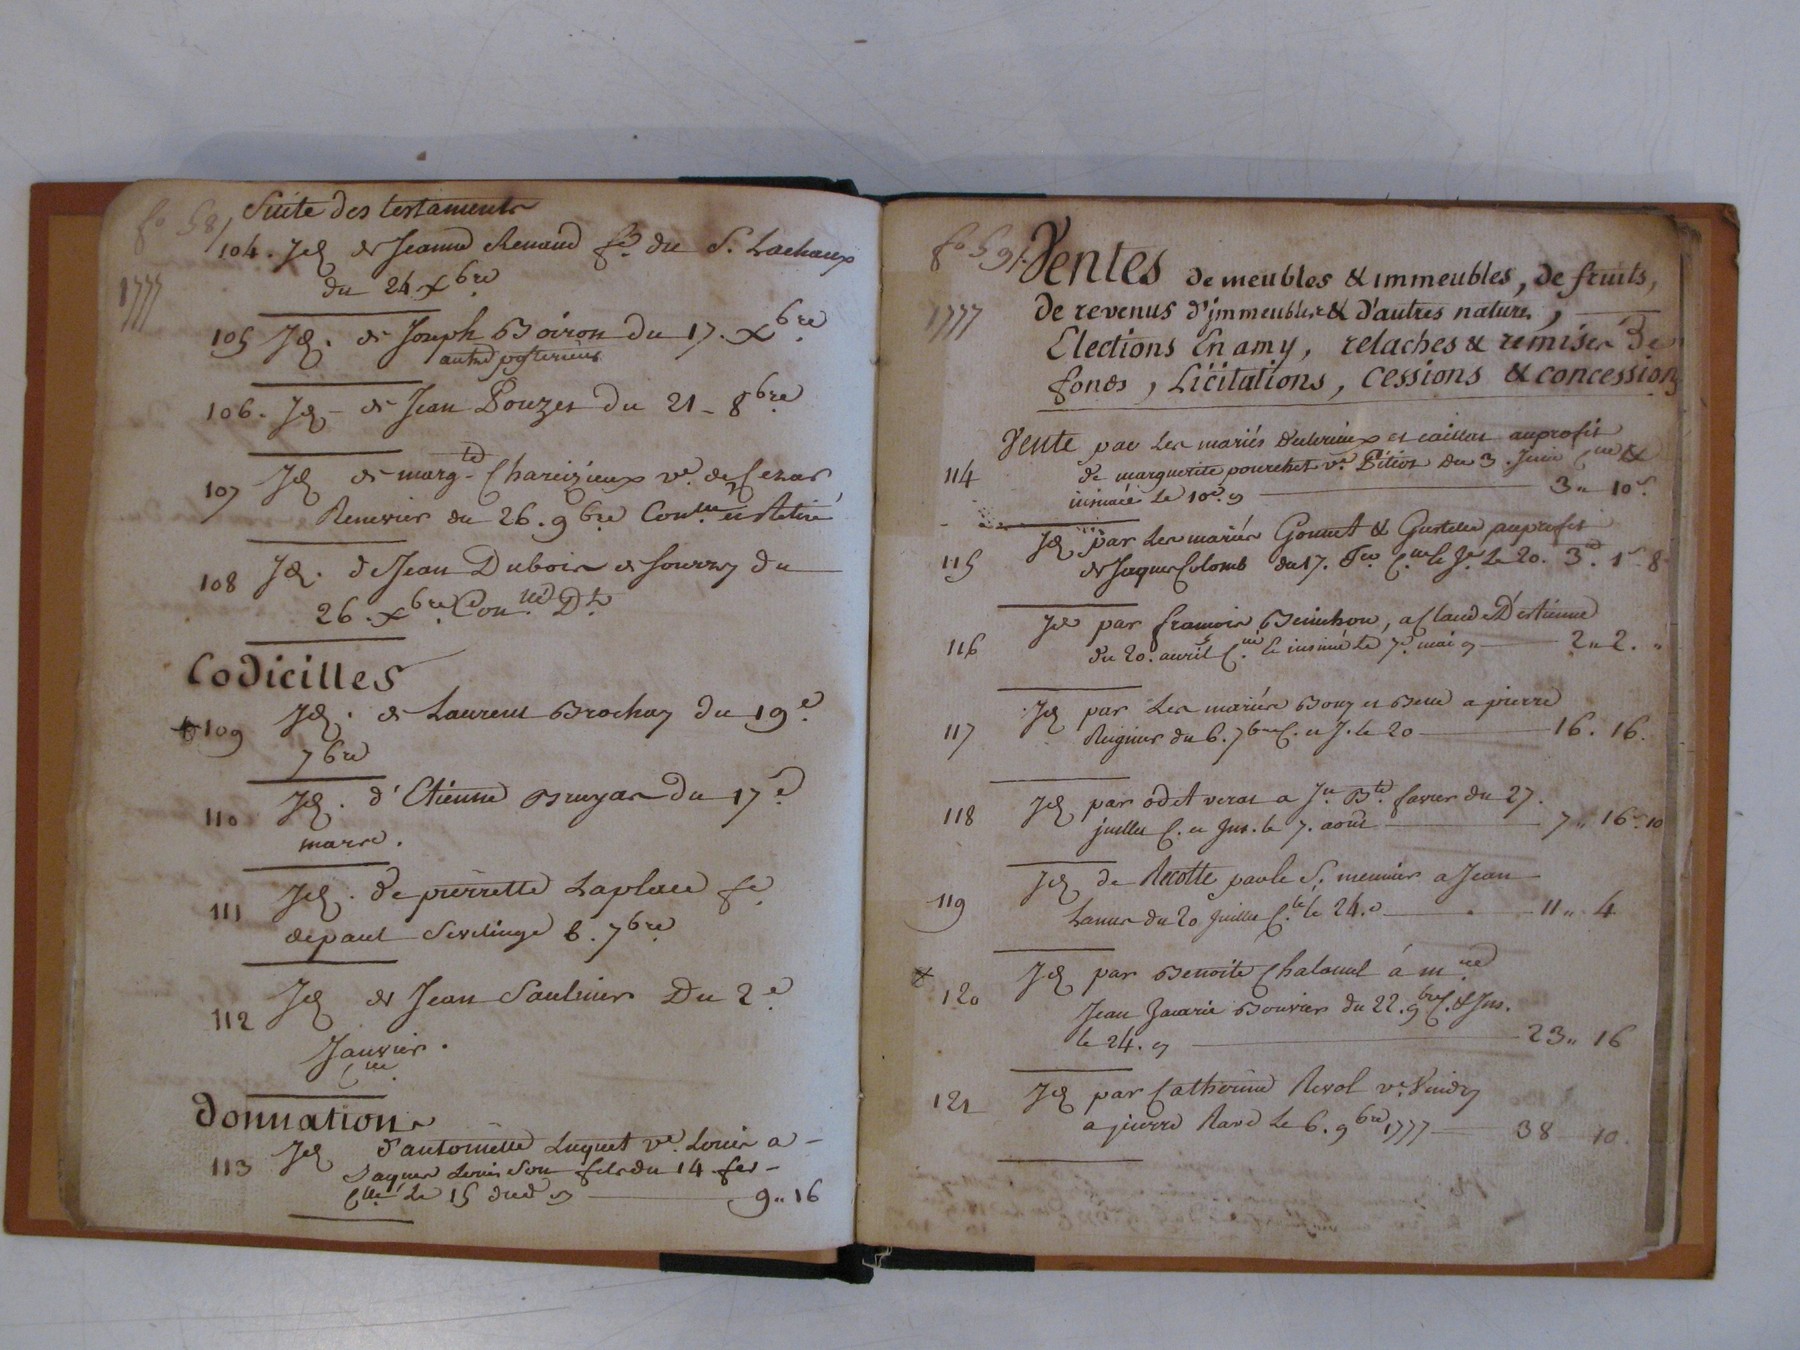 fo 58
Suite des testaments
1777
104. Id de Jeanne Renaud fe. du S. Lachaux
du 24. Xbre
105 Id. de Joseph Boiron du 17. Xbre
autre posterieur
106. Id - de Jean Pouzet du 21 - 8bre
107 Id de margte Charezieux ve. de Cezar
Renevier du 26. 9bre et Retiré
108 Id. de Jean Dubois de Sourzy du
26. Xbre
Codicilles
109 Id. de Laurent Brochay du 19e.
7bre
110 Id. d'Etienne Bruyas du 17e.
mars.
111 Id. de pierrette Laplace fe
de paul Sevelinge 6. 7bre
112 Id de Jean Saulnier Du 2e
Janvier.
Donnation
113 Id d'antoinette Luquet ve. Louis a
Jaques Louis son fils du 14 fer
le 15 dud 9" 16
fo 59
1777
Ventes de meubles & immeubles, de fruits,
de revenus d'immeubles & d'autres natures,
Elections En amy, relaches & remises De
fonds, Licitations, cessions & concessions
Vente par les mariés et caillat au profit
114 de marguerite pourchet ve. Pitiot du 3. Juin
insinuée le 10e. 3" 10s
115 Id par les mariés Gonnet & au profit
de Jaques Colomb du 17. le 20. 3. 1s 8
116 Id par francois Benichon, a Claude D'estienne
du 20. avril insinué le 7e. mai 2" 2. "
117 Id par les mariés Bouz et a pierre
Reignier du 6. 7bre C. et J. le 20 16. 16.
118 Id par odet veras a Jn. Bte. favier du 27.
juillet C. et Ins. le 7. août 7" 16s. 10
119 Id de Recolte par le S. meunier a Jean
Lanus du 20 Juillet le 24. 11" 4
120 Id par Benoite Chalamel á mre
Jean Zacarie Bouvier du 22. 9bre C. & Ins.
le 24. 23" 16
121 Id par Catherine Revol ve. Vindry
a pierre Rave Le 6. 9bre 1777 38 10.